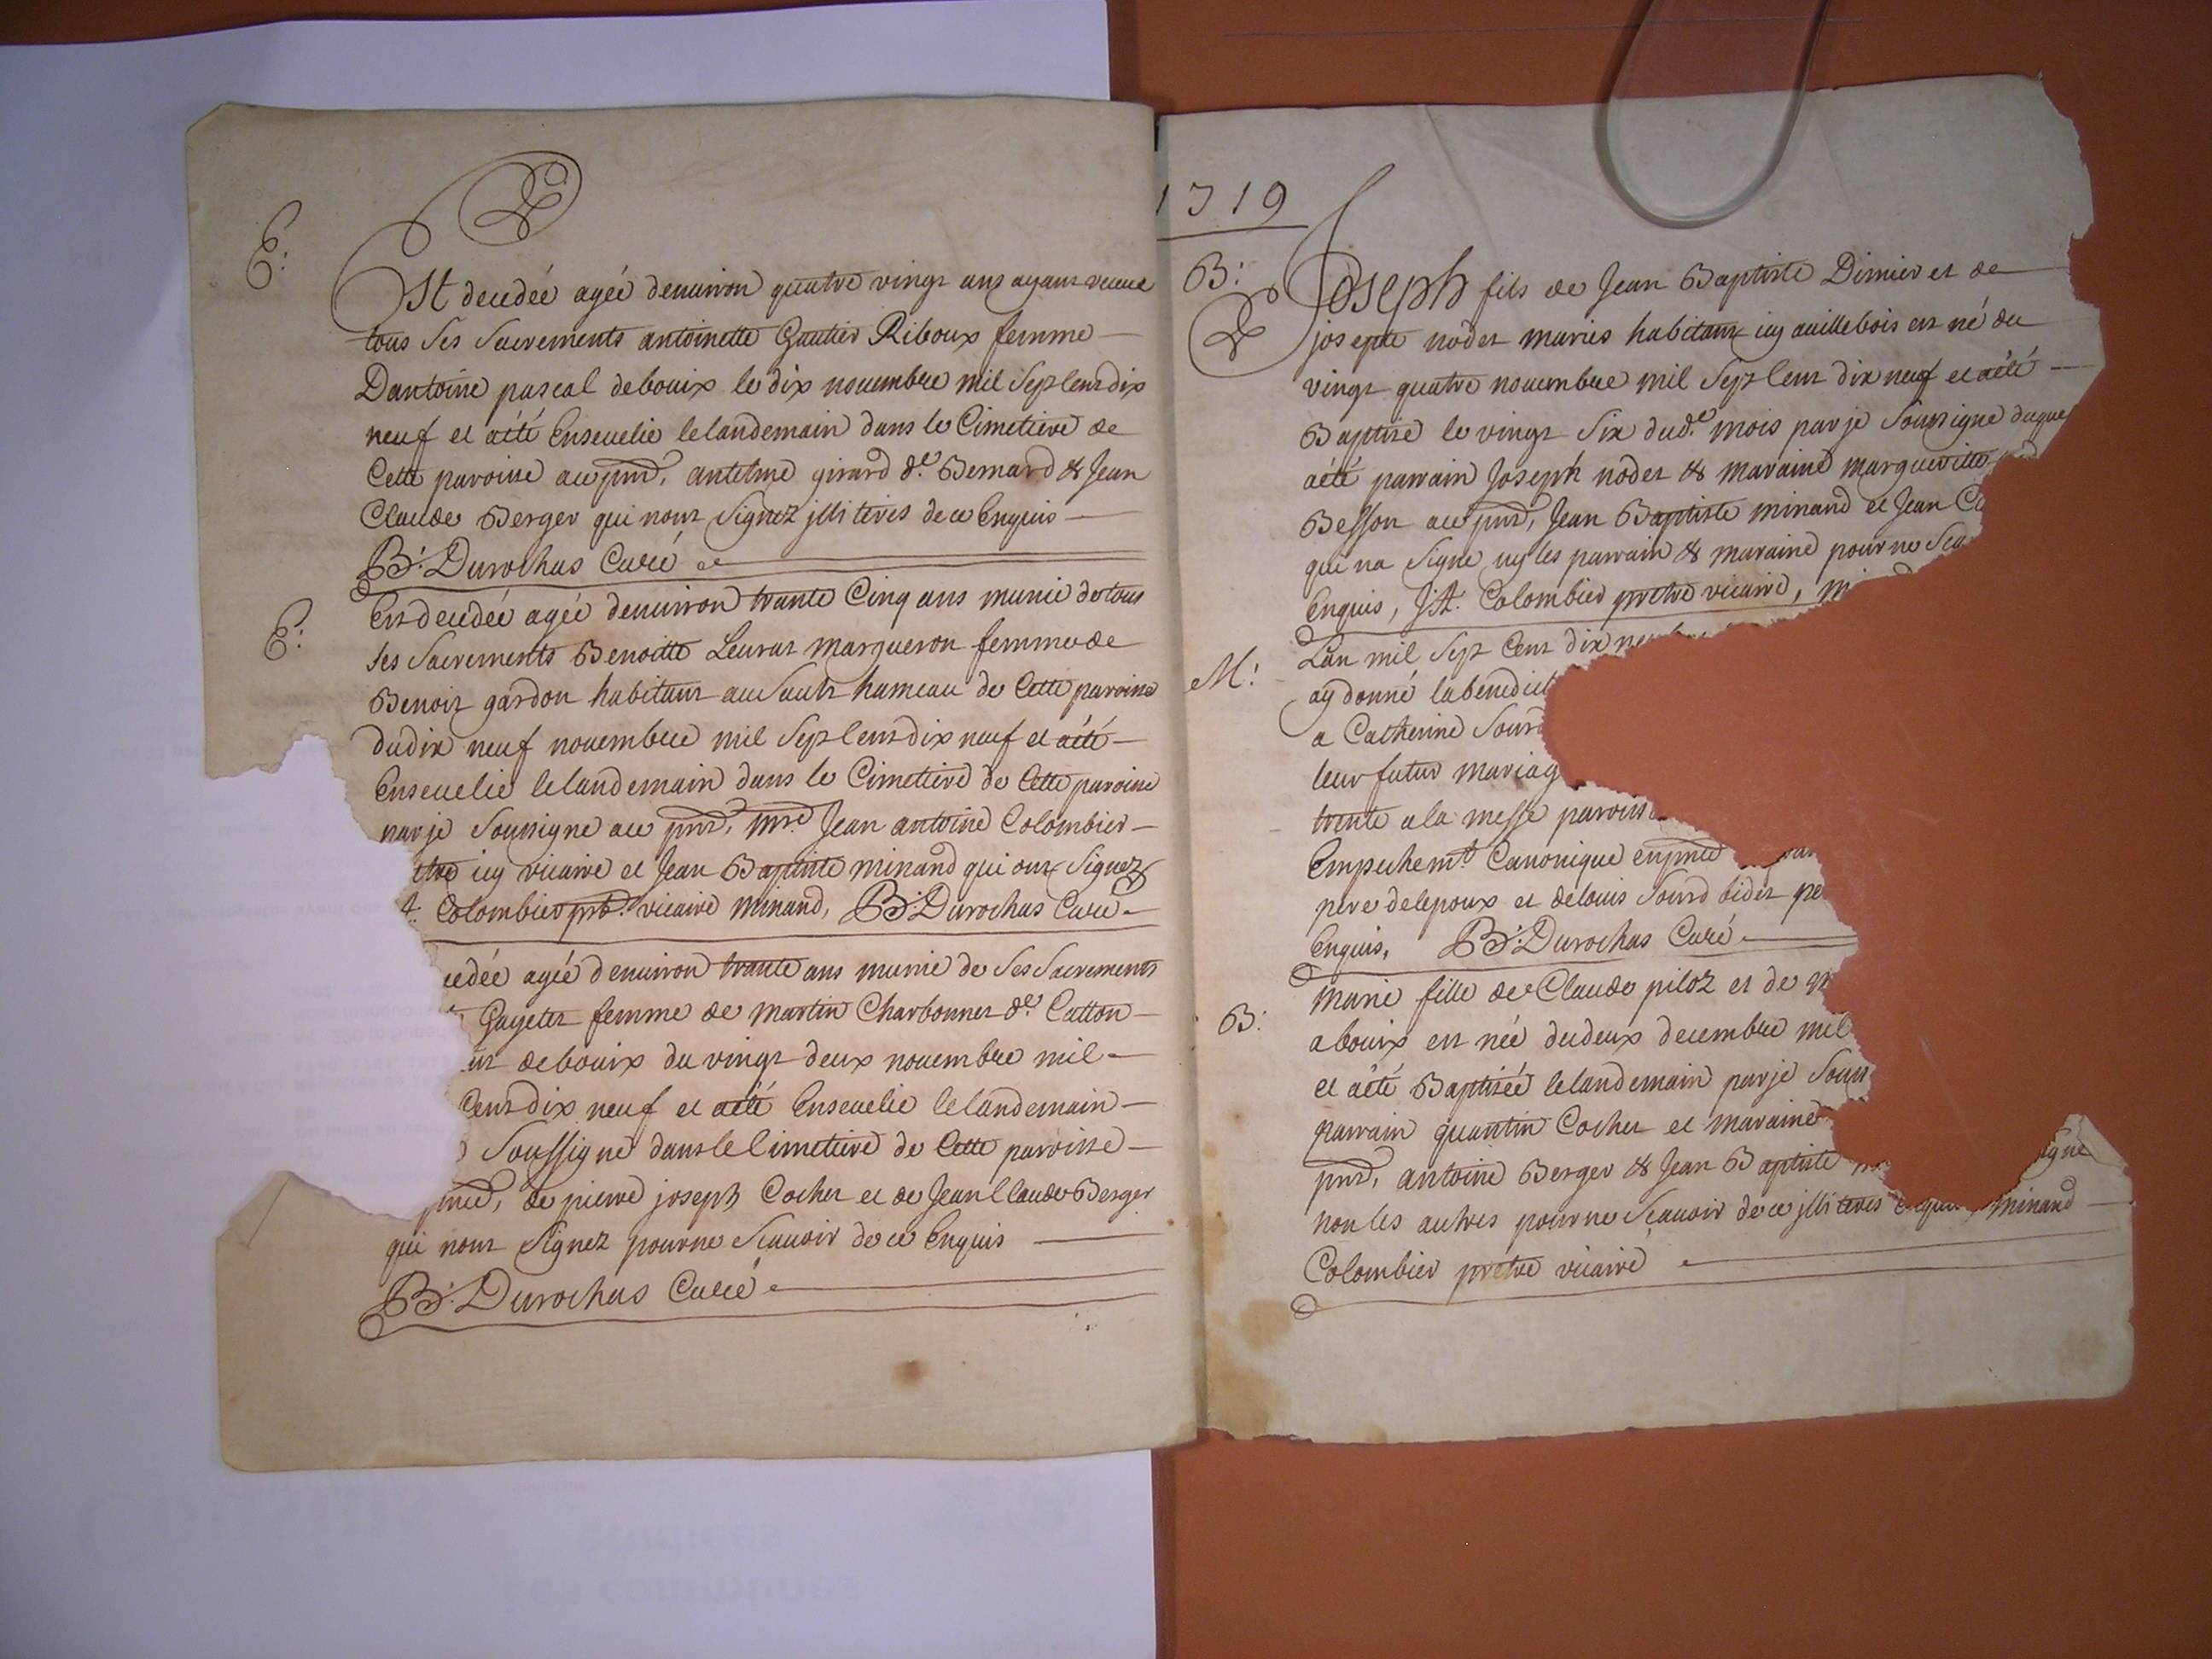 E:
Est decedéé agéé denuiron quatre vingt ans ayant receue
tous Ses Sacrements antoinette Gautier Riboux femme
Dantoine pascal debouix le dix nouembre mil Sept Cent dix
neuf et aété Enseuelie lelandemain dans le Cimetiere de
Cette paroisse au pnd, antelme girard d.t Bernard & Jean
Claude Berger qui nont Signez jlliterés de ce Enquis
B: Durochas Curé
E:
Est decedéé agéé denuiron trante Cinq ans munie de tous
ses Sacrements Benoitte Leurat Margueron femme de
Benoit gardon habitant au Sault hameau de Cette paroisse
du dix neuf nouembre mil Sept Cent dix neuf et aété
Enseuelie lelandemain dans le Cimetiere de Cette paroisse
par je Soussigne au pnd, mre Jean antoine Colombier
tre icy vicaire et Jean Baptiste minand qui ont Signez
A: Colombier prb: vicaire minand, B: Durochas Curé
cedéé agéé denuiron trante ans munie de Ses Sacrements
Gayetet femme de Martin Charbonnet d.t Catton
nt debouix du vingt deux nouembre mil
Cent dix neuf et aété Enseuelie lelandemain
Soussigné dans le Cimetiere de Cette paroisse
pnd, de pierre joseph Cochet et de Jean Claude Berger
qui nont Signez pour ne Scauoir de ce Enquis
B: Durochas Curé
1719
B:
Joseph fils de Jean Baptiste Dimier et de
josepte nodet mariés habitant icy auillebois est né du
vingt quatre nouembre mil Sept Cent dix neuf et aété
Baptisé le vingt Six dud.t mois par je Soussigne duquel
aété parrain Joseph nodet & maraine margueritte
Besson au pnd, Jean Baptiste minand et Jean Cl
qui na Signe ny les parrain & maraine pour ne Sca
Enquis, J:A: Colombier pretre vicaire, mi
M:
Lan mil Sept Cent dix neu
ay donné la benedict
a Catherine Sourd
leur futur mariag
trente a la messe paroiss
Empechem.t Canonique enpnd
pere delepoux et delouis Sourd bidet pe
Enquis, B: Durochas Curé
B:
Marie fille de Claude piloz et de M
abouix est néé dudeux decembre mil
et aété Baptiséé lelandemain par je Sous
parrain quantin Cochet et maraine
pnd, antoine Berger & Jean Baptiste igne
non les autres pour ne Scauoir de ce jlliterés enquis minand
Colombier pretre vicaire